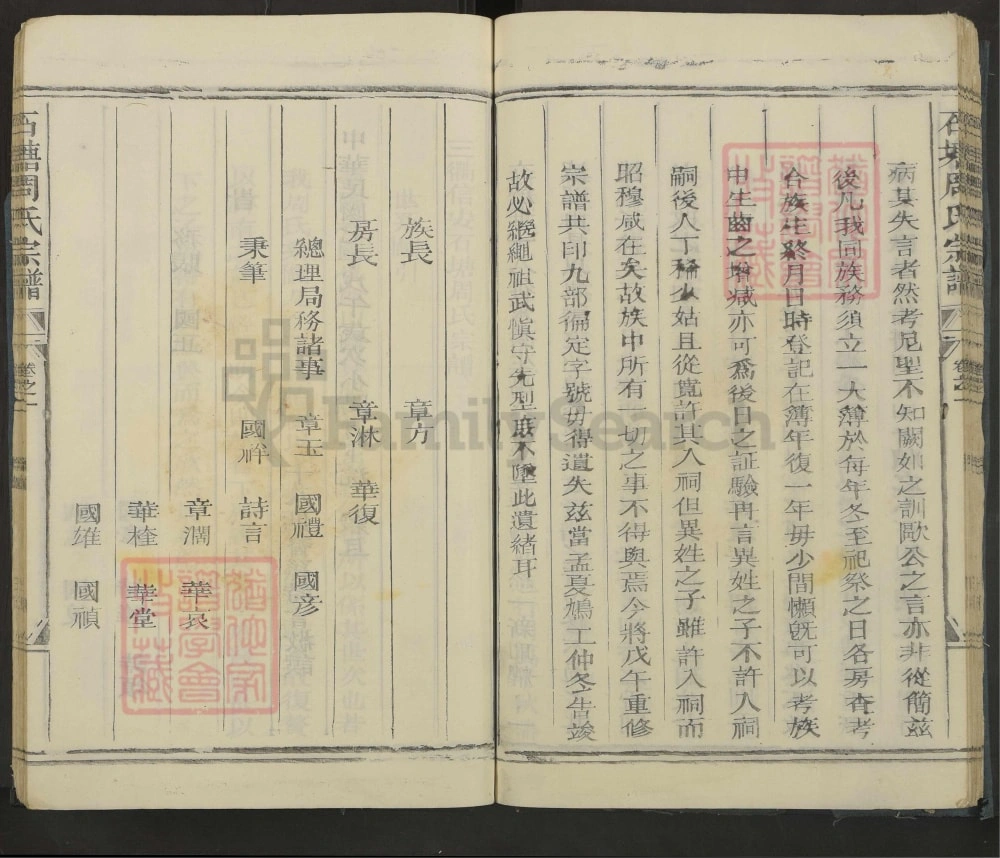 病其失言者然考尼聖不知闕如之訓歐公之言亦非從簡茲
後凡我同族務須立一大薄於每年冬至祀祭之日各房査考
合族生終月日時登記在薄年復一年毋少間懶旣可以考族
中生齒之增减亦可爲後日之証驗再言異姓之子不許入祠
嗣後人丁稀少姑且從寬許其入祠但異姓之子雖許入祠而
昭穆咸在矣故族中所有一切之事不得與焉今將戊午重修
宗譜共印九部徧定字號毋得遺失玆當孟夏鳩工仲冬告竣
故必繩繩祖武愼守先型庶不墮此遺緖耳
族長 章方
房長 章淋 華復
總理局務諸事 章玉 國禮 國彦
秉筆 國祥 詩言
章澗 華
華桂 華堂
國雄 國禎
石塘周氏宗譜
卷之一
FamilySearch